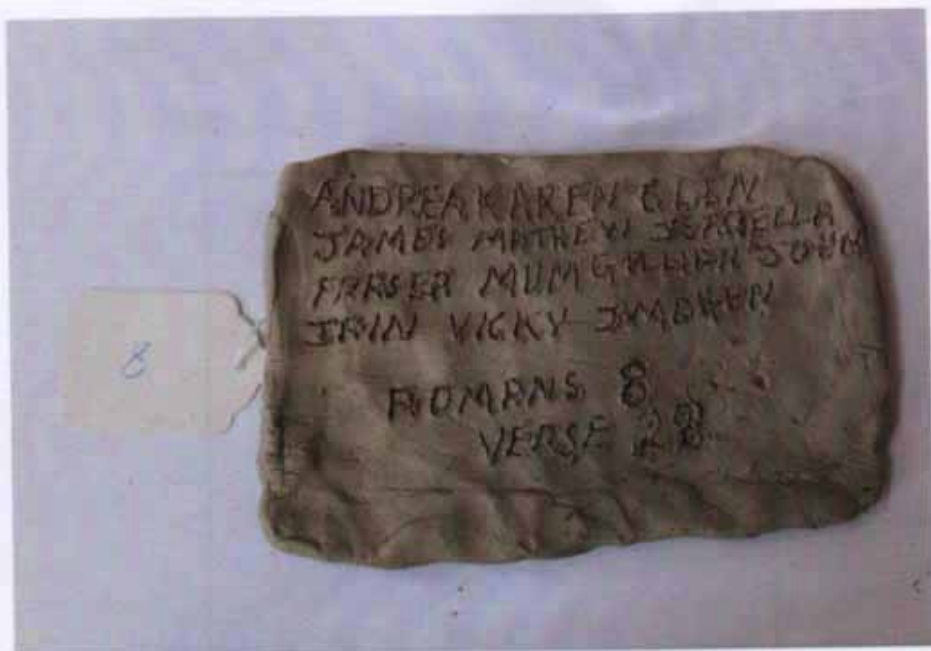 8
ANDREA KAREN GLEN
JAMES MATHEW ISABELLA
FRASER MUM GILLIAN JOHN
IAIN VICKY
ROMANS 8
VERSE 28